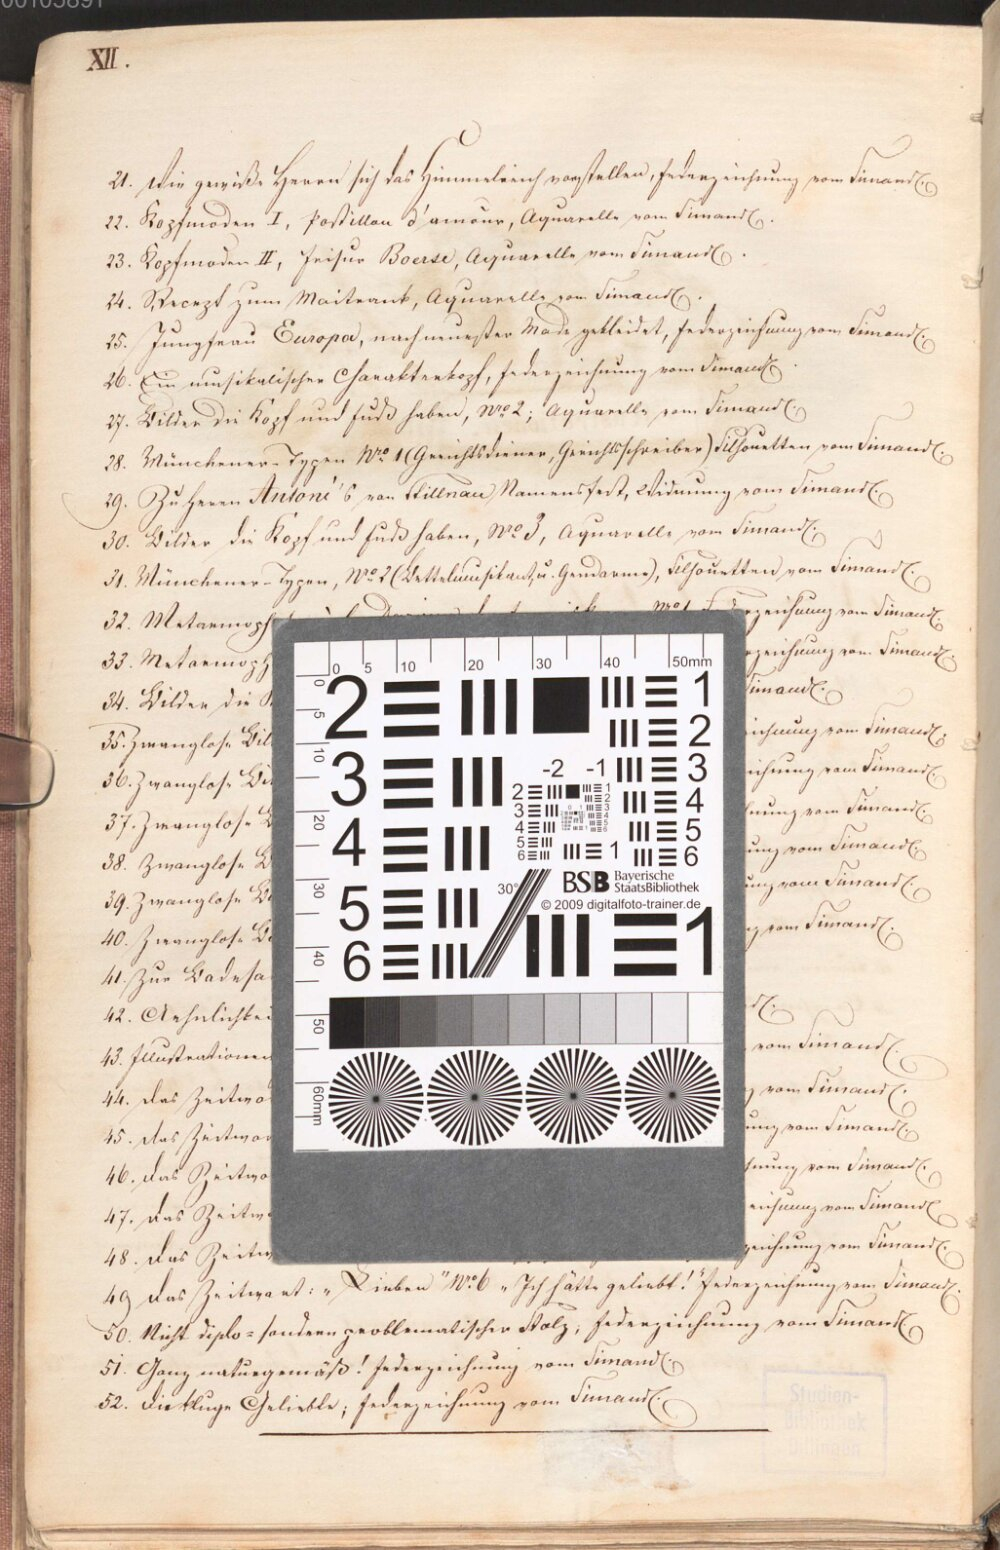 00105891
XII.
21. Wie gewiße Herren sich das Himmelreich vorstellen, Federzeichnung vom Simandl.
22. Kopfmoden I, Postillon d'amour, Aquarelle vom Simandl.
23. Kopfmoden II, Frisur Boerse, Aquarelle vom Simandl.
24. Recept zum Maitrank, Aquarelle vom Simandl.
25. Jungfrau Europa, nach neuester Mode gekleidet, Federzeichnung vom Simandl.
26. Ein musikalischer Charakterkopf, Federzeichnung vom Simandl.
27. Bilder die Kopf und Fuß haben, No 2; Aquarelle vom Simandl.
28. Münchener-Typen No 1 (Gerichtsdiener, Gerichtsschreiber) Silhouetten vom Simandl.
29. Zu Herrn Antoni's von Stillnau Namensfest, Widmung vom Simandl.
30. Bilder die Kopf und Fuß haben, No 3, Aquarelle vom Simandl.
31. Münchener-Typen, No 2 (Bettelmusikant u. Gendarme), Silhouetten vom Simandl.
32. Metamorph No 1 Federzeichnung vom Simandl.
33. Metamorph zeichnung vom Simandl.
34. Bilder die Simandl.
35. Zwanglose Bil eichnung vom Simandl.
36. Zwanglose Bi ichnung vom Simandl.
37. Zwanglose B hnung vom Simandl.
38. Zwanglose B ung vom Simandl.
39. Zwanglose B ung vom Simandl.
40. Zwanglose B g vom Simandl.
41. Zur Badesa
42. Aehnlichkei dl.
43. Illustrationen vom Simandl.
44. Das Zeitwo g vom Simandl.
45. Das Zeitwor ung vom Simandl.
46. Das Zeitwo hnung vom Simandl.
47. Das Zeitw eichnung vom Simandl.
48. Das Zeitw zeichnung vom Simandl.
49. Das Zeitwort: „Lieben" No 6 „Ich hätte geliebt!" Federzeichnung vom Simandl.
50. Nicht diplo= sondern problematischer Stolz; Federzeichnung vom Simandl.
51. Ganz naturgemäß! Federzeichnung vom Simandl.
52. Die kluge Geliebte; Federzeichnung vom Simandl.
0 5 10 20 30 40 50mm
0 5 10 20 30 40 50 60mm
2 1
2
3 -2 -1 3
4 4
5
1 6
5 30° BSB Bayerische
StaatsBibliothek
© 2009 digitalfoto-trainer.de
6 1
Studien-
Bibliothek
Dillingen